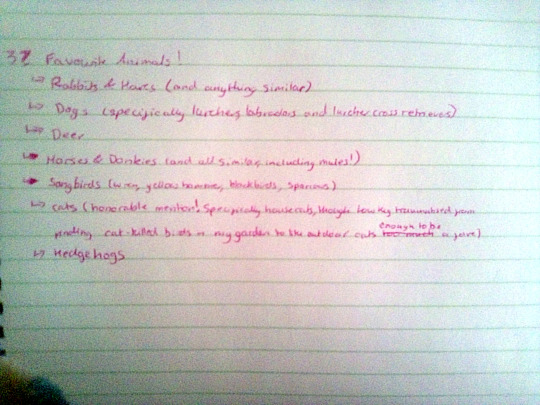 3 Favourite Animals!
↳ Rabbits & Hares (and anything similar)
↳ Dogs (specifically lurchers labradors and lurcher cross retrievers)
↳ Deer
↳ Horses & Donkies (and all similar, including mules!)
↳ Songbirds (wren, yellow hammer, blackbirds, sparrows)
↳ cats (honorable mention! Specifically house cats, though too traumatised from
enough to be
finding cat-killed birds in my garden to like outdoor cats too much a fave)
↳ Hedgehogs